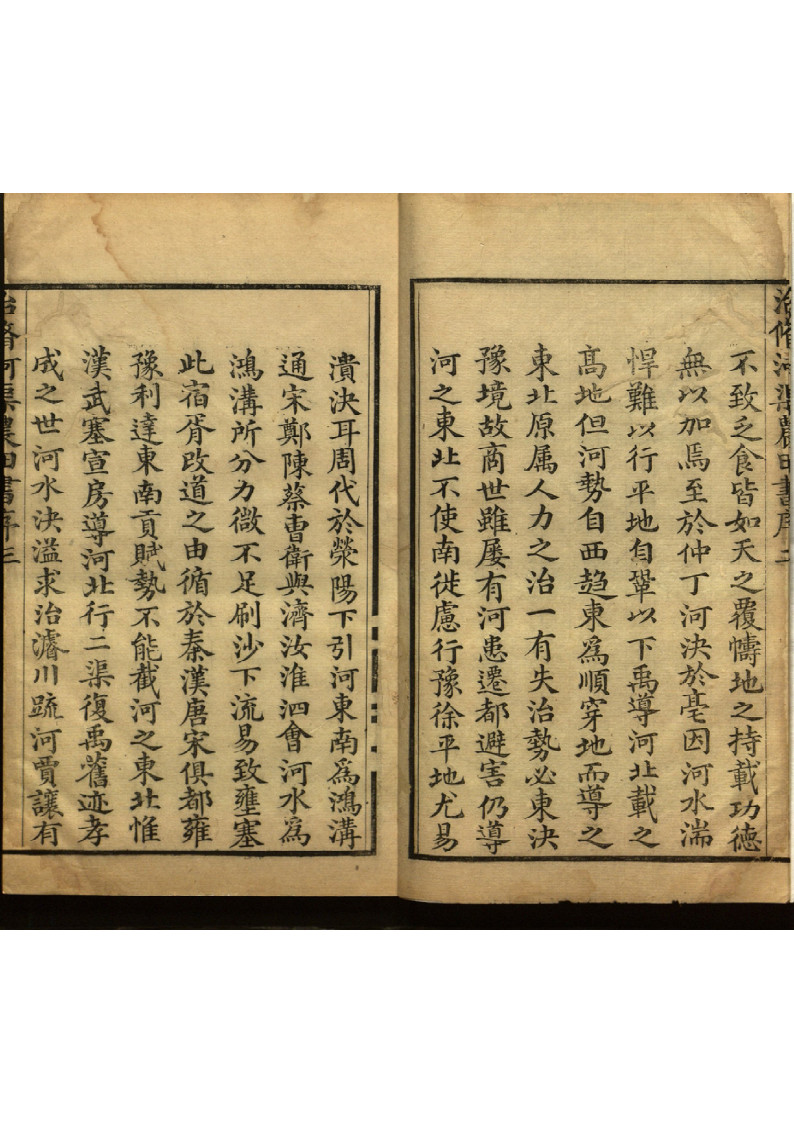 治脩河渠農田書序二
不致乏食皆如天之覆幬地之持載功德
無以加焉至於仲丁河決於亳因河水湍
悍難以行平地自鞏以下禹導河北載之
髙地但河勢自西趋東為順穿地而導之
東北原属人力之治一有失治勢必東決
豫境故商世雖屡有河患遷都避害仍導
河之東北不使南徙慮行豫徐平地尤易
潰決耳周代於滎陽下引河東南爲鴻溝
通宋鄭陳蔡曹衛與濟汝淮泗會河水為
鴻溝所分力微不足刷沙下流易致壅塞
此宿胥改道之由循於秦漢唐宋俱都雍
豫利達東南貢賦勢不能截河之東北惟
漢武塞宣房導河北行二渠復禹舊迹孝
成之世河水決溢求治濬川䟽河賈讓有
治脩河渠農田書序三